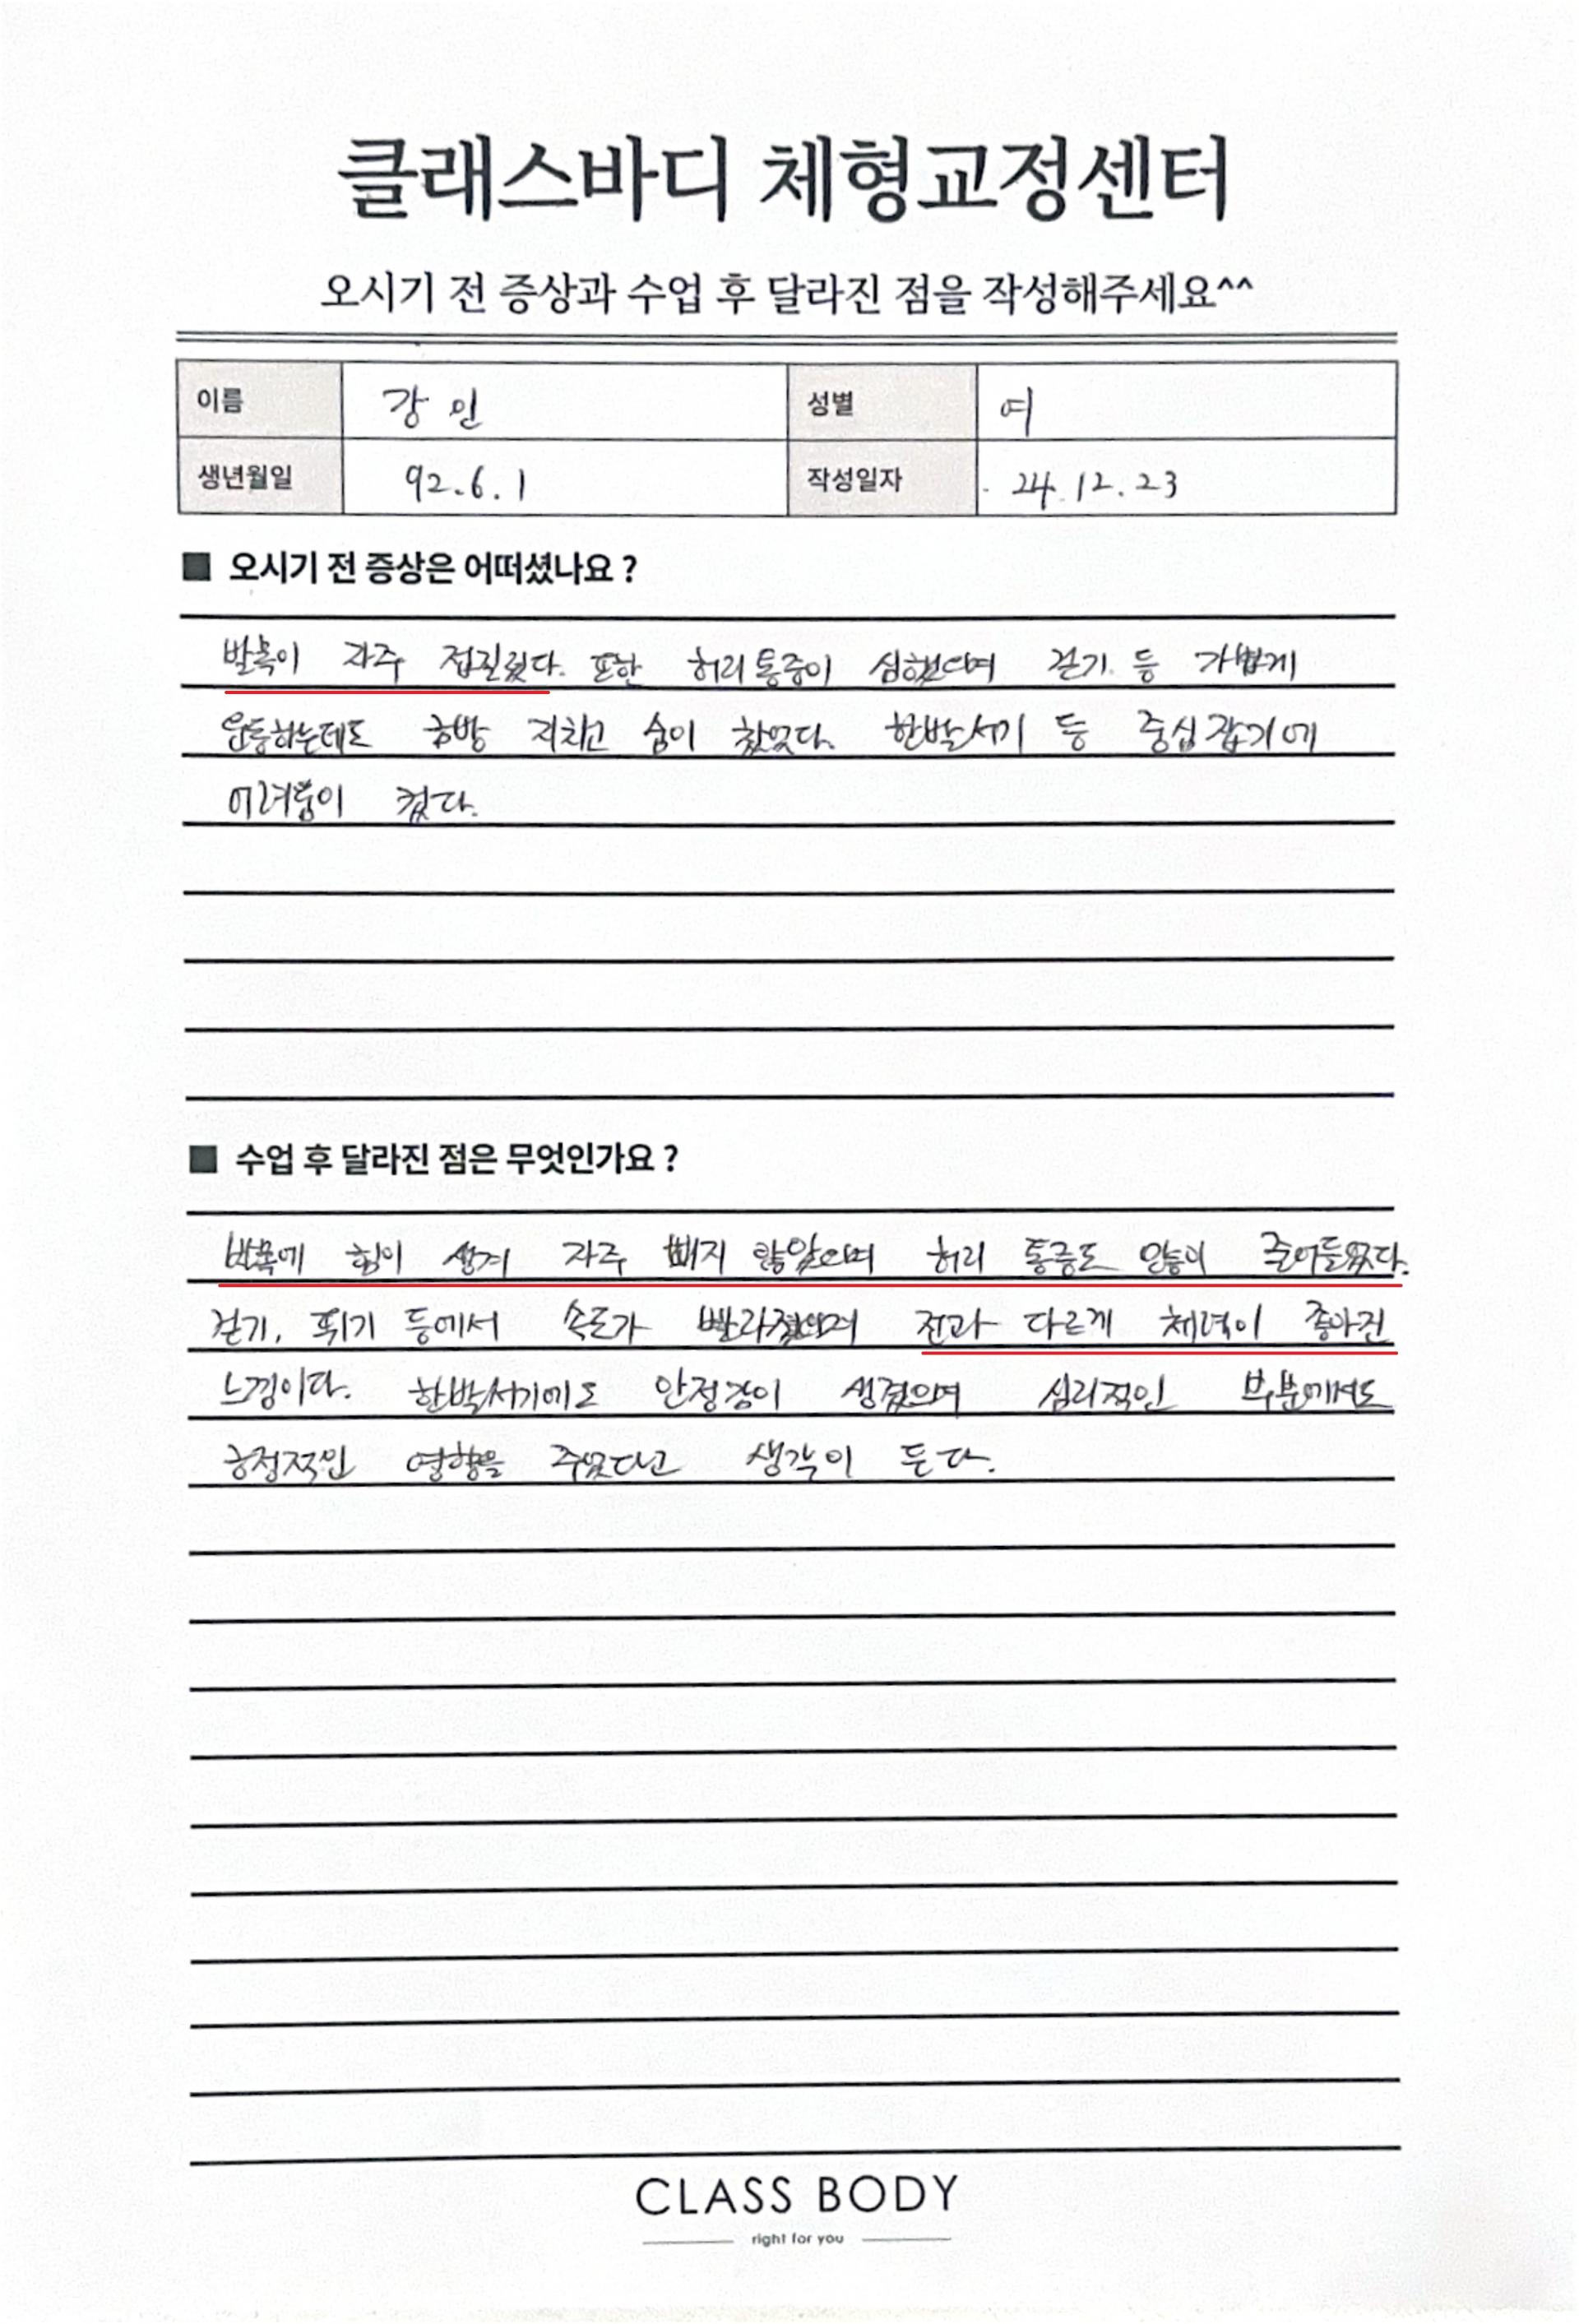 클래스바디 체형교정센터
오시기 전 증상과 수업 후 달라진 점을 작성해주세요^^
이름 강 인 성별 여
생년월일 92.6.1 작성일자 24.12.23
■ 오시기 전 증상은 어떠셨나요 ?
발목이 자주 접질렸다. 또한 허리통증이 심했으며 걷기 등 가볍게
운동하는데도 금방 지치고 숨이 찼었다. 한발서기 등 중심잡기에
어려움이 컸다.
■ 수업 후 달라진 점은 무엇인가요 ?
발목에 힘이 생겨 자주 삐지 않았으며 허리 통증도 줄어들었다.
걷기, 뛰기 등에서 속도가 빨라졌으며 전과 다르게 체력이 좋아진
느낌이다. 한발서기에도 안정감이 생겼으며 심리적인 부분에서도
긍정적인 영향을 주었다고 생각이 든다.
CLASS BODY
right for you